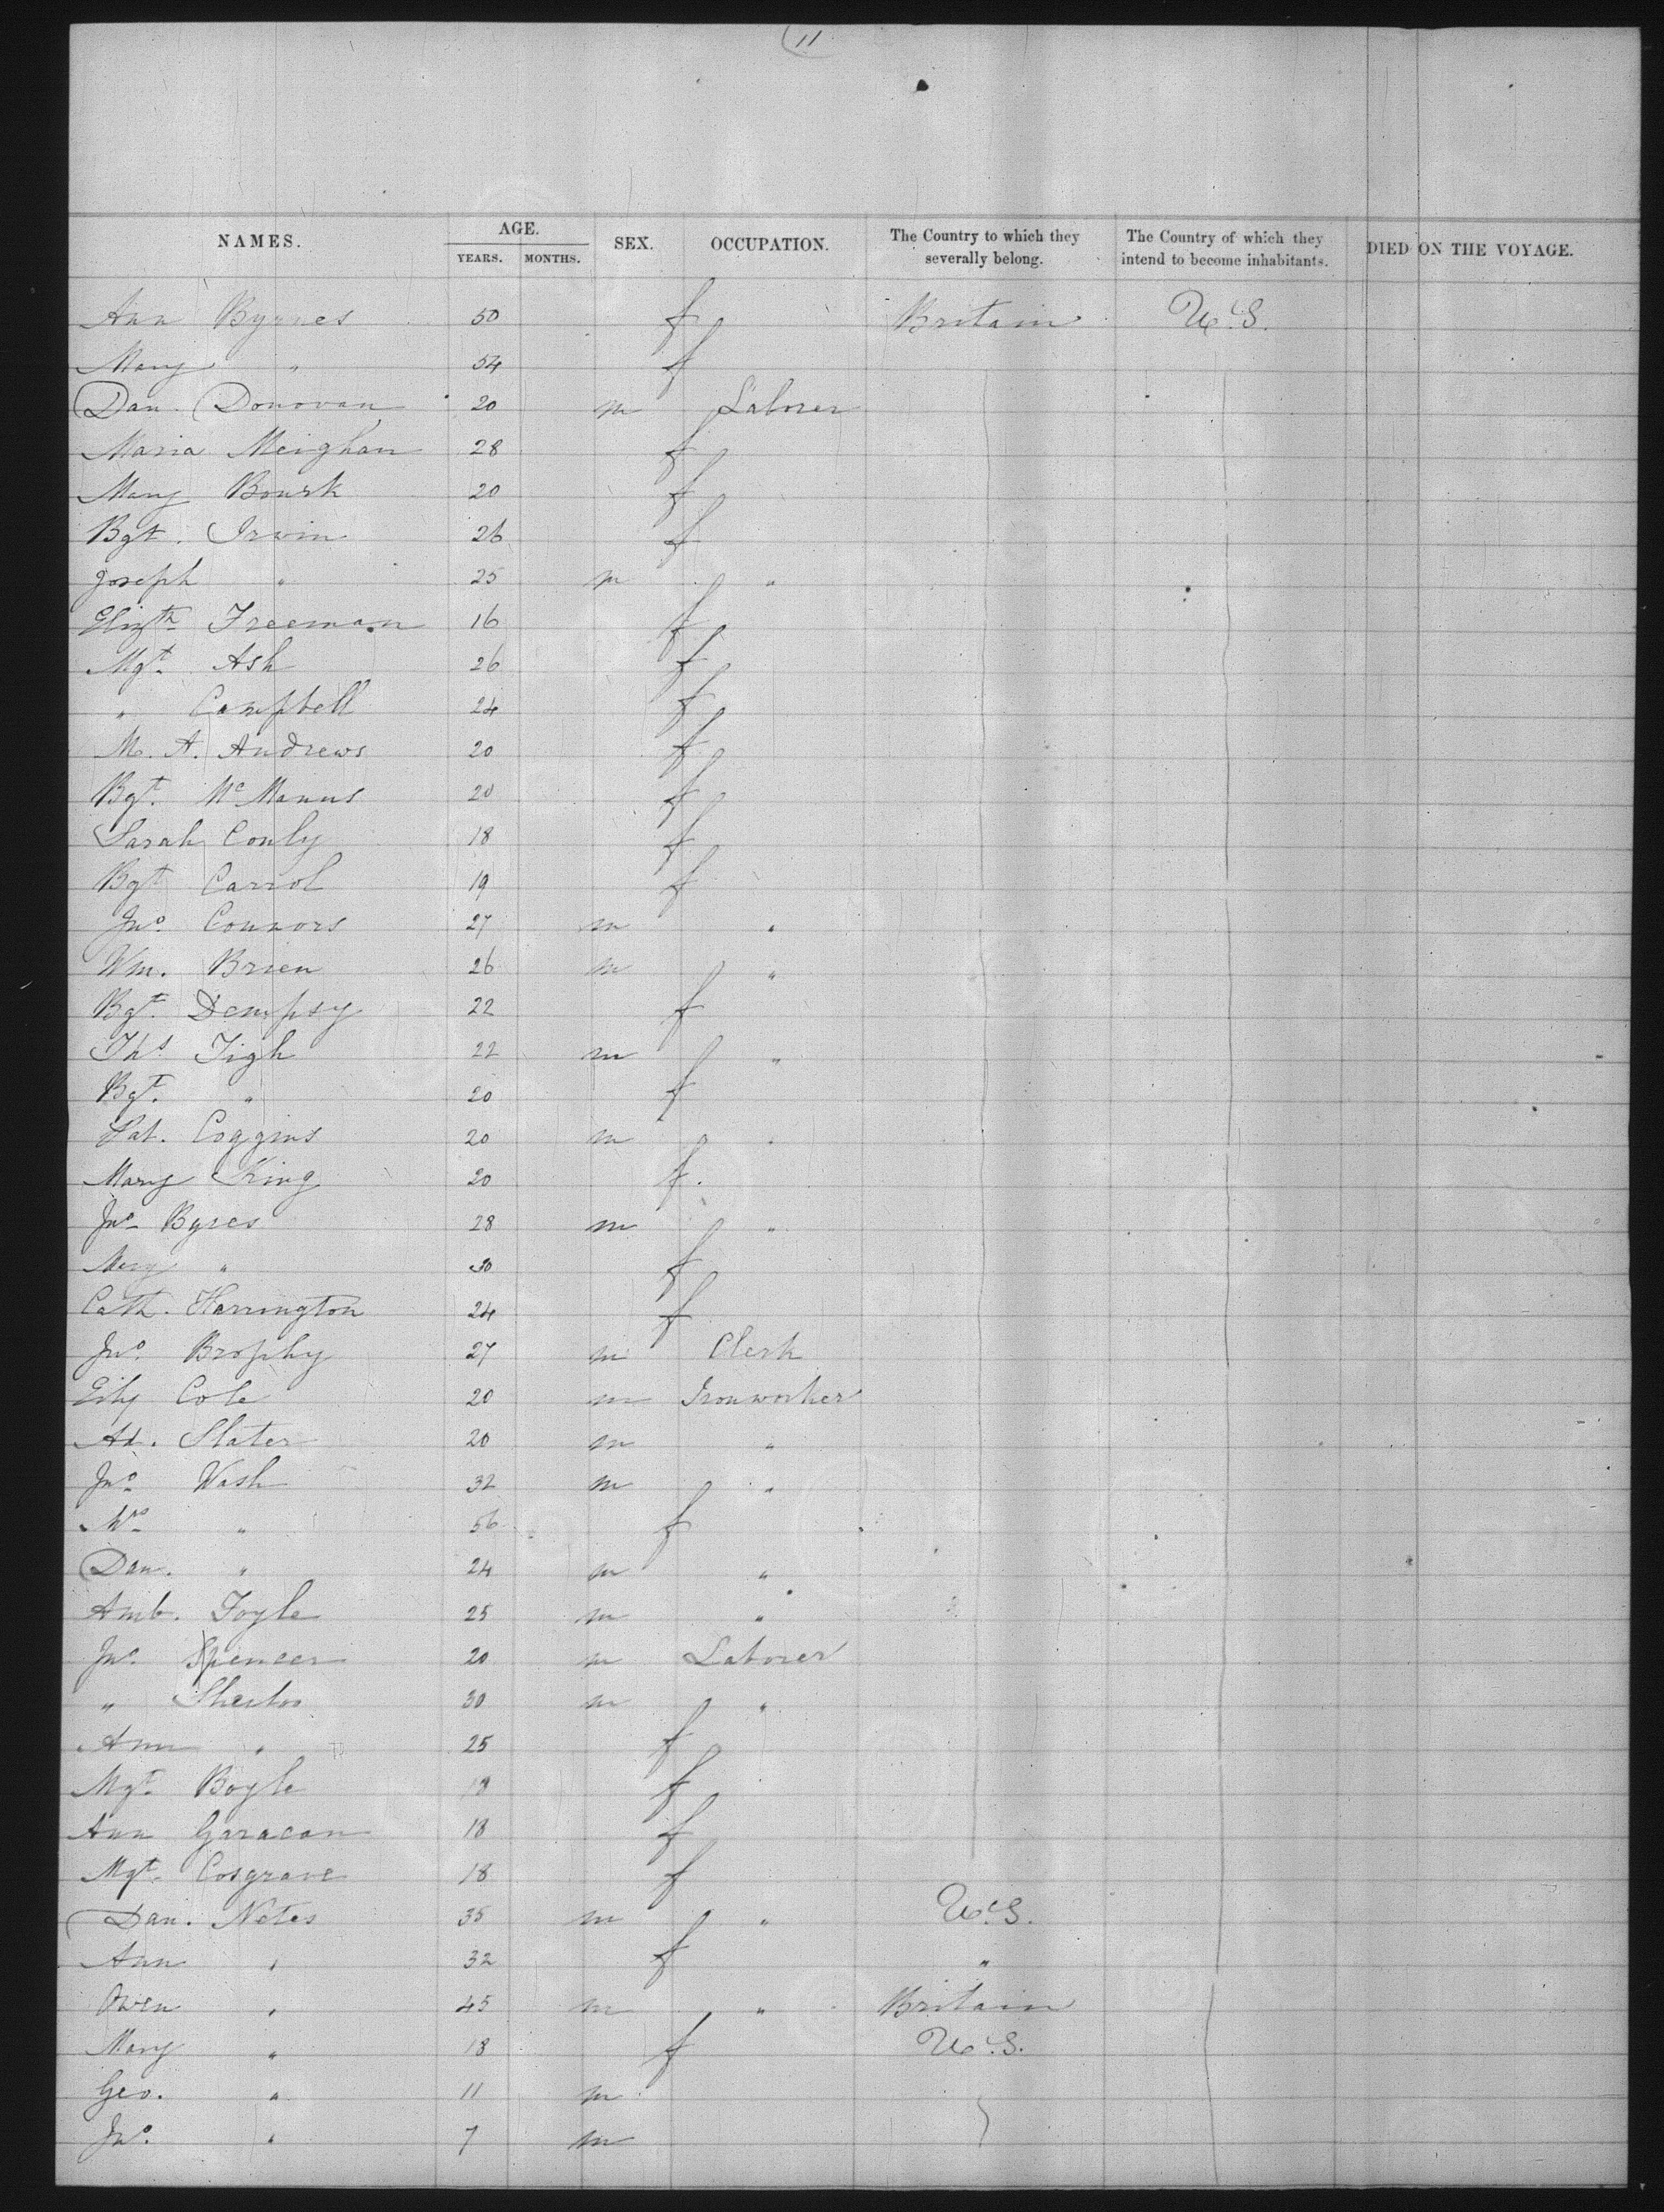 11
NAMES. AGE. YEARS. MONTHS. SEX. OCCUPATION. The Country to which they severally belong. The Country of which they intend to become inhabitants. DIED ON THE VOYAGE.
Ann Byrnes 50 f Britain U.S.
Mary " 54 f
Dan. Donovan 20 m Laborer
Maria Meighan 28 f
Mary Bourk 20 f
Bgt. Irwin 26 f
Joseph " 25 m "
Elizth Freeman 16 f
Mgt. Ash 26 f
" Campbell 24 f
M. A. Andrews 20 f
Bgt. McManus 20 f
Sarah Conly 18 f
Bgt Carrol 19 f
Jno. Connors 27 m "
Wm. Brien 26 m "
Bgt. Dempsy 22 f
Ths Tigh 22 m "
Bgt. " 20 f
Pat. Coggins 20 m "
Mary King 20 f.
Jno. Byres 28 m "
Mary " 30 f
Cath. Harrington 24 f
Jno. Brophy 27 m Clerk
Cole 20 m Ironworker
Ad. Slater 20 m "
Jno. Wash 32 m "
Mrs " 56 f
Dan. " 24 m "
Amb. Foyle 25 m "
Jno. Spencer 20 m Laborer
" 30 m "
Ann " 25 f
Mgt. Boyle 18 f
Ann Garacan 18 f
Mgt. Cosgrave 18 f
Dan. Notes 35 m " U.S.
Ann " 32 f "
Owen " 45 m " Britain
Mary " 18 f U.S.
Geo. " 11 m
Jno. " 7 m